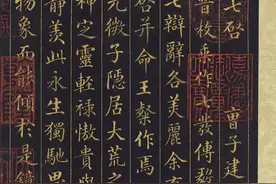 七啓 曹子建
昔枚乘作七發傅毅
七辯辭各美麗余有
啓并命王粲作焉
元微子隱居大荒之
神定靈輕祿傲貴與
靜羨此永生獨馳思
物象而能傾於是鏡